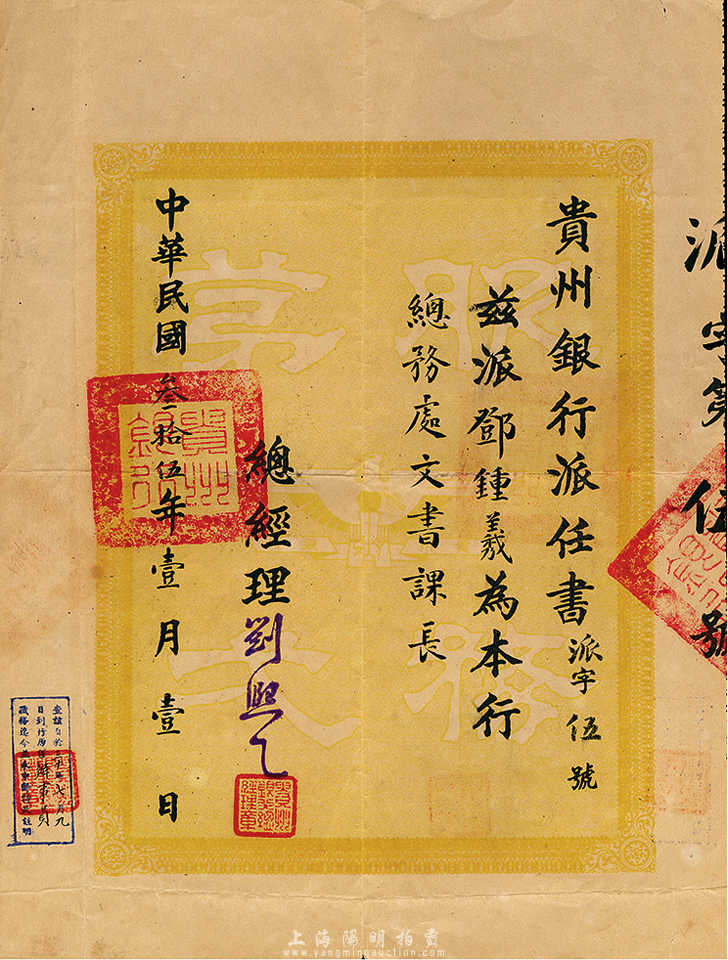 派字第伍號
貴州銀行派任書 派字伍號
茲派鄧鍾羲為本行
總務處文書課長
總經理劉熙乙
中華民國叁拾伍年壹月壹日
貴州銀行
貴州銀行總經理章
服務
上海陽明拍賣
www.yangmingauction.com